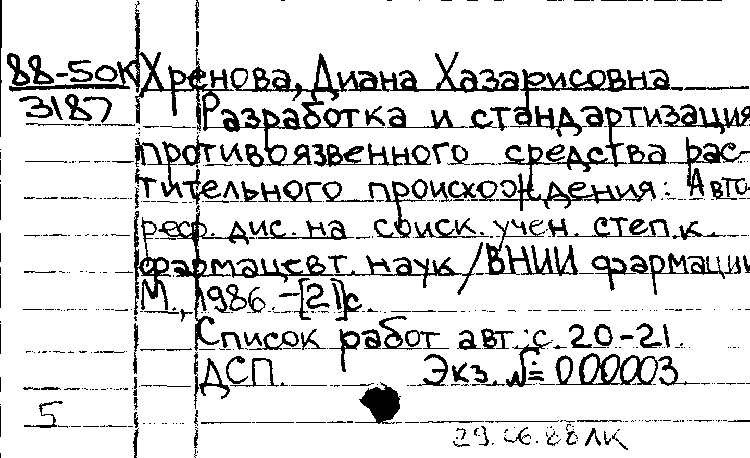 88-50К Хренова, Диана Хазарисовна
3187 Разработка и стандартизация
противоязвенного средства рас-
тительного происхождения: Авто-
реф. дис. на соиск. учен. степ. к.
фармацевт. наук / ВНИИ фармации
М., 1986. - [21] с.
Список работ авт.: с. 20-21.
ДСП. Экз. № 000003
5
29.06.88 ЛК